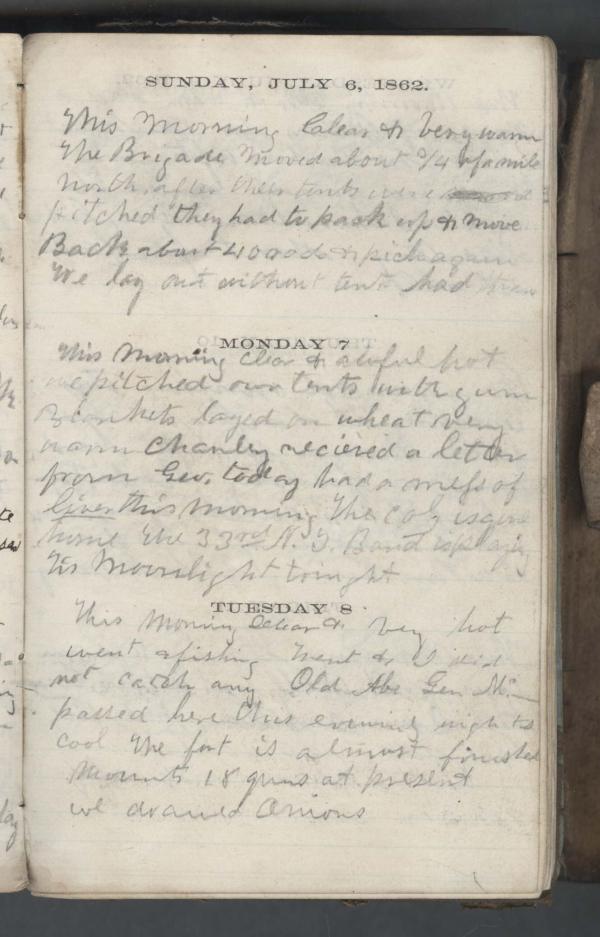 SUNDAY, JULY 6, 1862.
This Morning Clear & very warm
The Brigade Moved about 3/4 of a mile
North, after their tents were
pitched they had to pack up & move
Back about 40 rods & pitch again
We lay out without tents had
MONDAY 7
This Morning clear & awful hot
we pitched our tents with gum
Blankets layed on wheat very
warm Charley recieved a letter
from Geo. today had a mess of
liver this morning The Col is gone
home The 33rd N.Y. Band is playing
Tis Moonlight tonight
TUESDAY 8
This Morning Clear & very hot
went a fishing Trent & I did
not catch any Old Abe Gen Mc
passed here this evening nights
cool The fort is almost finished
Mounts 18 guns at present
we drawed Onions